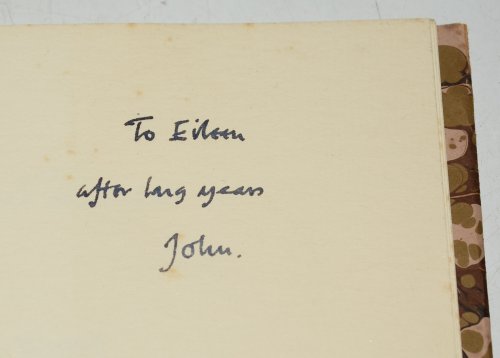 To Eileen
after long years
John.